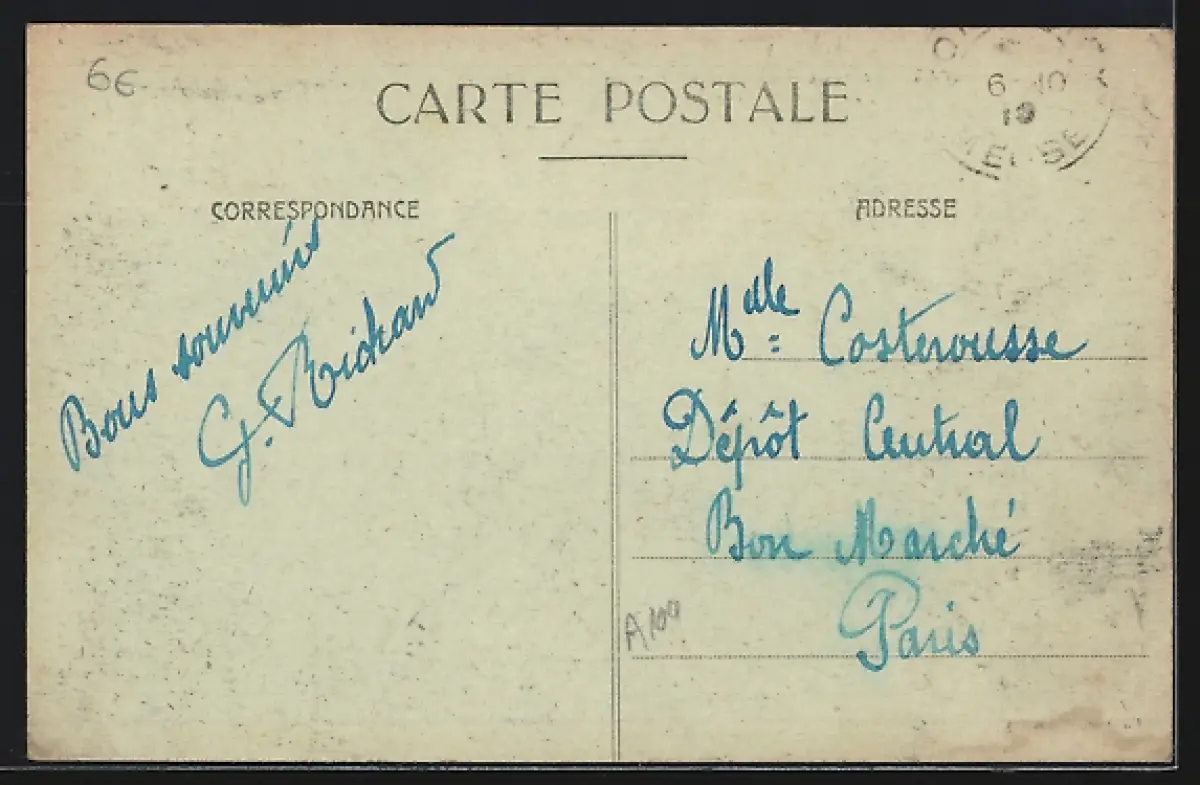 66
CARTE POSTALE
6 - 10
19
CORRESPONDANCE
Bons souvenirs
G. Richard
ADRESSE
Mdlle = Costerousse
Dépôt Central
Bon Marché
Paris
A100